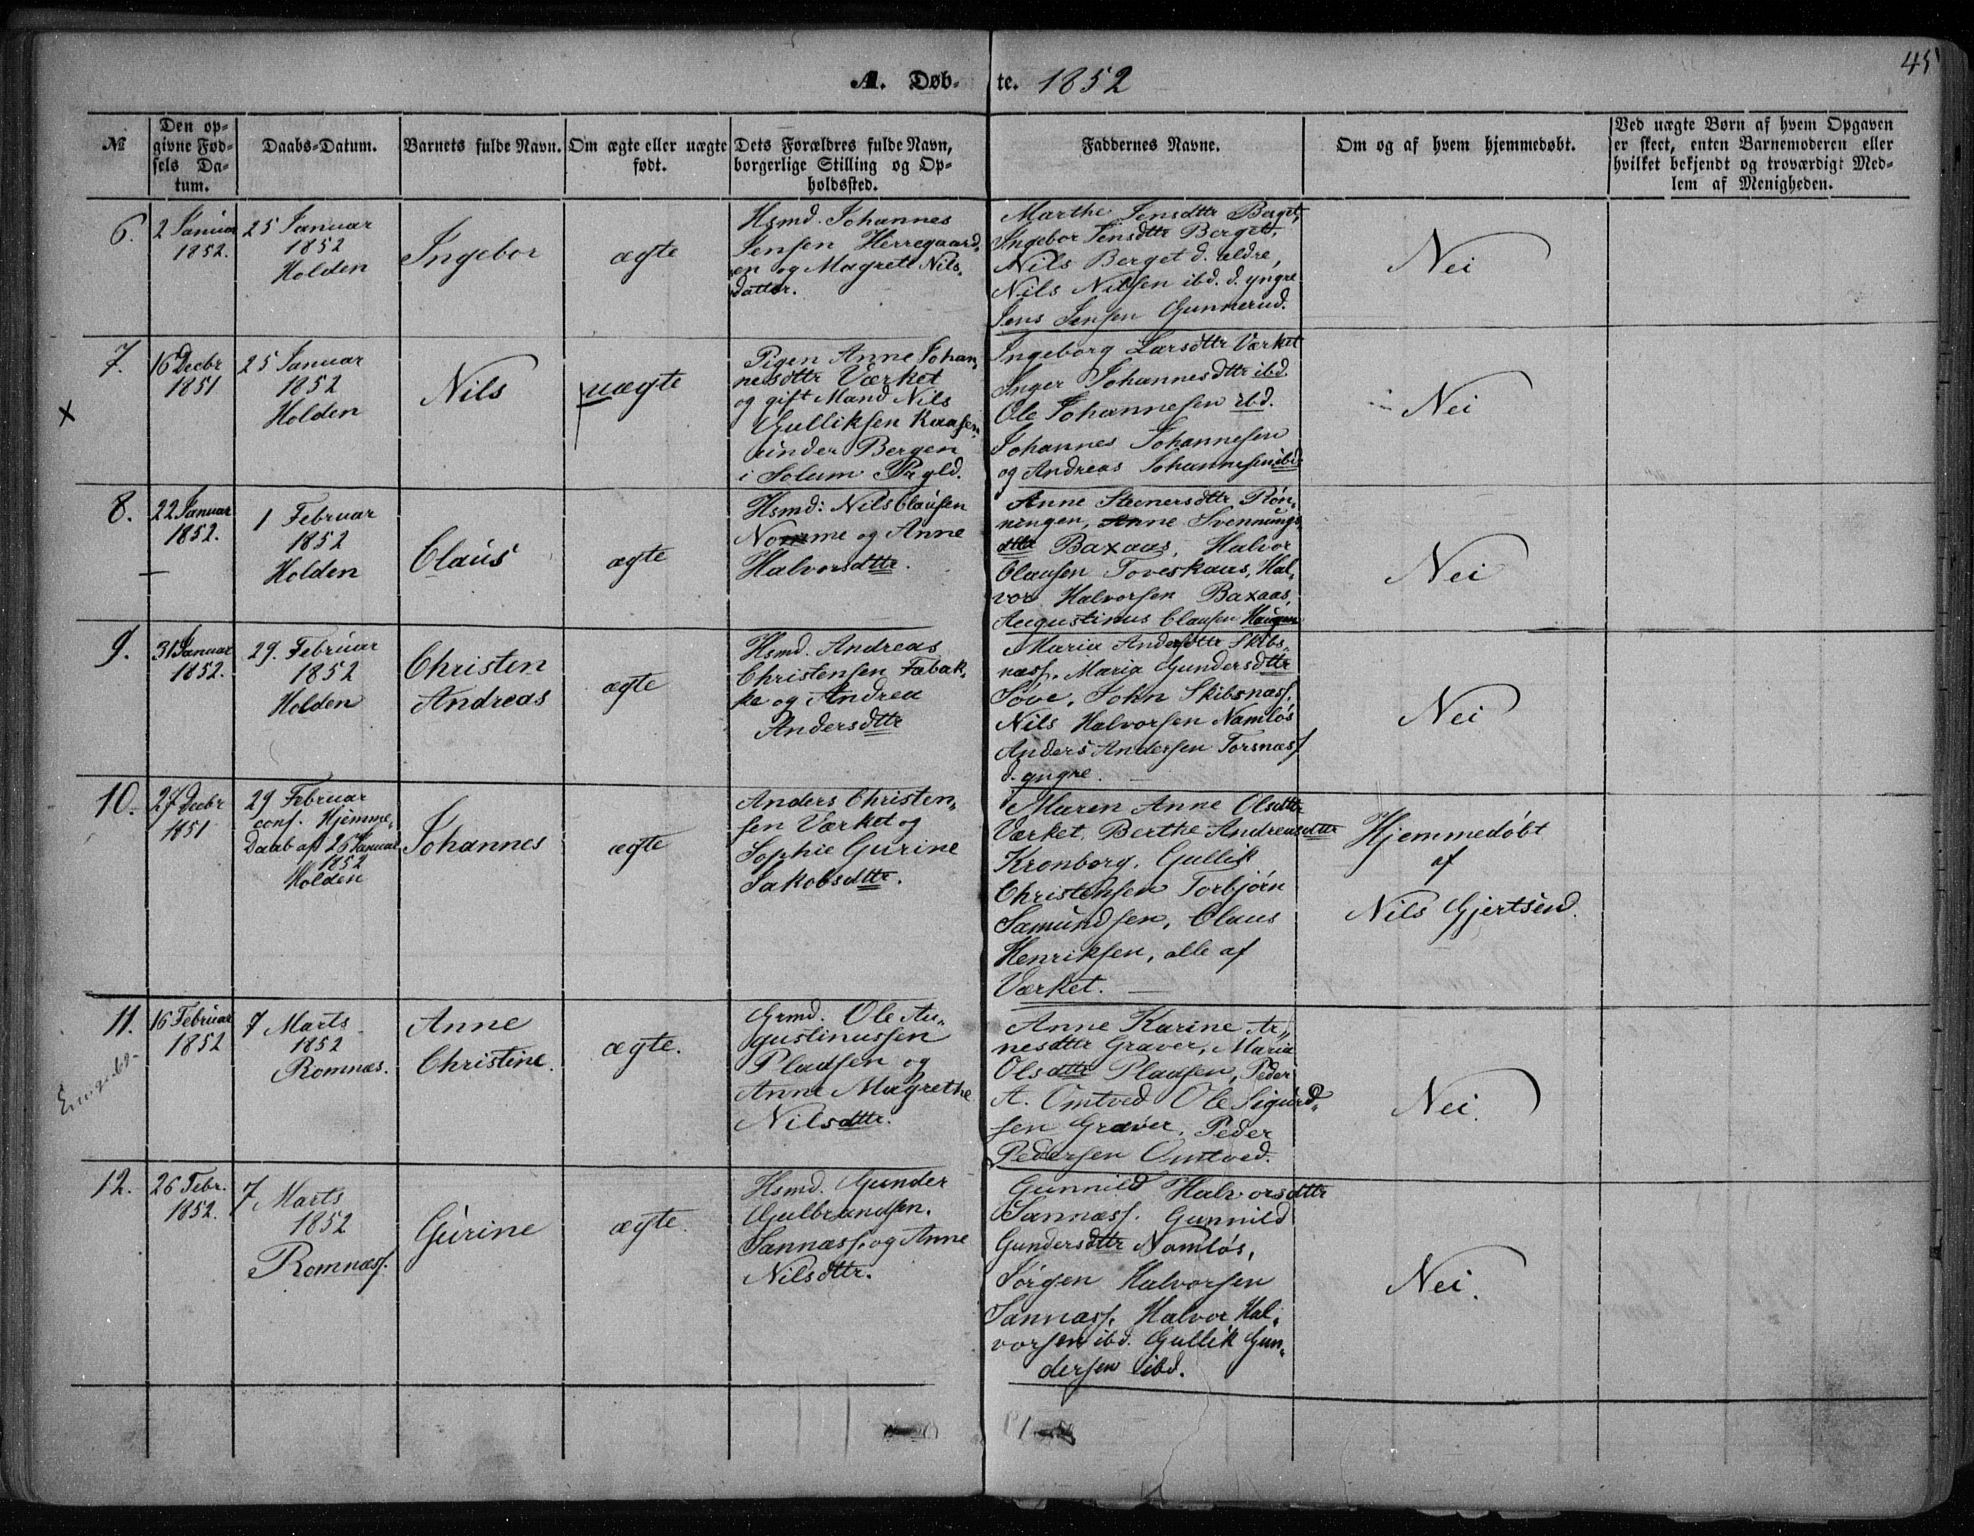 45
A. Døb- te. 1852
№
Den op-
givne Fød-
sels Da-
tum.
Daabs-Datum.
Barnets fulde Navn.
Om ægte eller uægte
født.
Dets Forældres fulde Navn,
borgerlige Stilling og Op-
holdssted.
Faddernes Navne.
Om og af hvem hjemmedøbt.
Ved uægte Børn af hvem Opgaven
er skeet, enten Barnemoderen eller
hvilket bekjendt og troværdigt Med-
lem af Menigheden.
6.
2 Januar
1852.
25 Januar
1852
Holden
Ingebor
ægte
Hsmd. Johannes
Jensen Herregaard-
en og Magrete Nils-
datter.
Marthe Jensdttr Berget,
Ingebor Jensdttr Berget,
Nils Berget d. ældre,
Nils Nilsen ibd. d. yngre
Jens Jensen Gunnerud.
Nei
7.
x
16 Decbr
1851
25 Januar
1852
Holden
Nils
uægte
Pigen Anne Johan-
nesdttr Værket
og gift Mand Nils
Gulliksen Kaasen
under Bergen
i Solum Prgld.
Ingeborg Larsdttr Værket
Inger Johannesdttr ibd.
Ole Johannesen ibd.
Johannes Johannesen
og Andreas Johannesen ibd
Nei
8.
22 Januar
1852.
1 Februar
1852
Holden
Claus
ægte
Hsmd: Nils Clausen
Nomme og Anne
Halvorsdttr.
Anne Steenersdttr Røn-
ningen, Anne Svennungs
dttr Baxaas, Halvor
Clausen Toveskaas, Hal-
vor Halvorsen Baxaas,
Augustinus Clausen Haugen
Nei
9.
31 Januar
1852.
29. Februar
1852
Holden
Christen
Andreas
ægte
Hsmd. Andreas
Christensen Tabak-
ke og Andrea
Andersdttr
Maria Andersdttr Skibs-
næss, Maria Gundersdttr
Sove, John Skibsnæss,
Nils Halvorsen Namløs
Anders Andersen Torsnæss
d. yngre.
Nei
10.
27 Decbr
1851
29 Februar
conf. Hjemme-
Daab af 26 Januar
1852
Holden
Johannes
ægte
Anders Christen-
sen Værket og
Sophie Gurine
Jakobsdttr.
Maren Anne Olsdttr
Værket, Berthe Andreasdttr
Kronborg, Gullik
Christensen Torbjørn
Samundsen, Claus
Henriksen, alle af
Værket.
Hjemmedøbt
af
Nils Gjertsen.
11.
16 Februar
1852
7 Marts
1852
Romnæs.
Anne
Christine.
ægte.
Grmd. Ole Au-
gustinussen
Pladsen og
Anne Magrethe
Nilsdttr.
Anne Karine Ar-
nesdttr Graver, Maria
Olsdttr Pladsen, Peder
A. Omtved Ole Sigurd-
sen Graver, Peder
Pedersen Omtved.
Nei.
12.
26 Febr.
1852.
7 Marts
1852
Romnæss.
Gurine
ægte.
Hsmd. Gunder
Gulbrandsen.
Sannæss. og Anne
Nilsdttr.
Gunnild Halvorsdttr
Sannæss. Gunnild
Gundersdttr Namløs,
Jørgen Halvorsen
Sannæss, Halvor Hal-
vorsen ibd. Gullik Gun-
dersen ibd.
Nei.